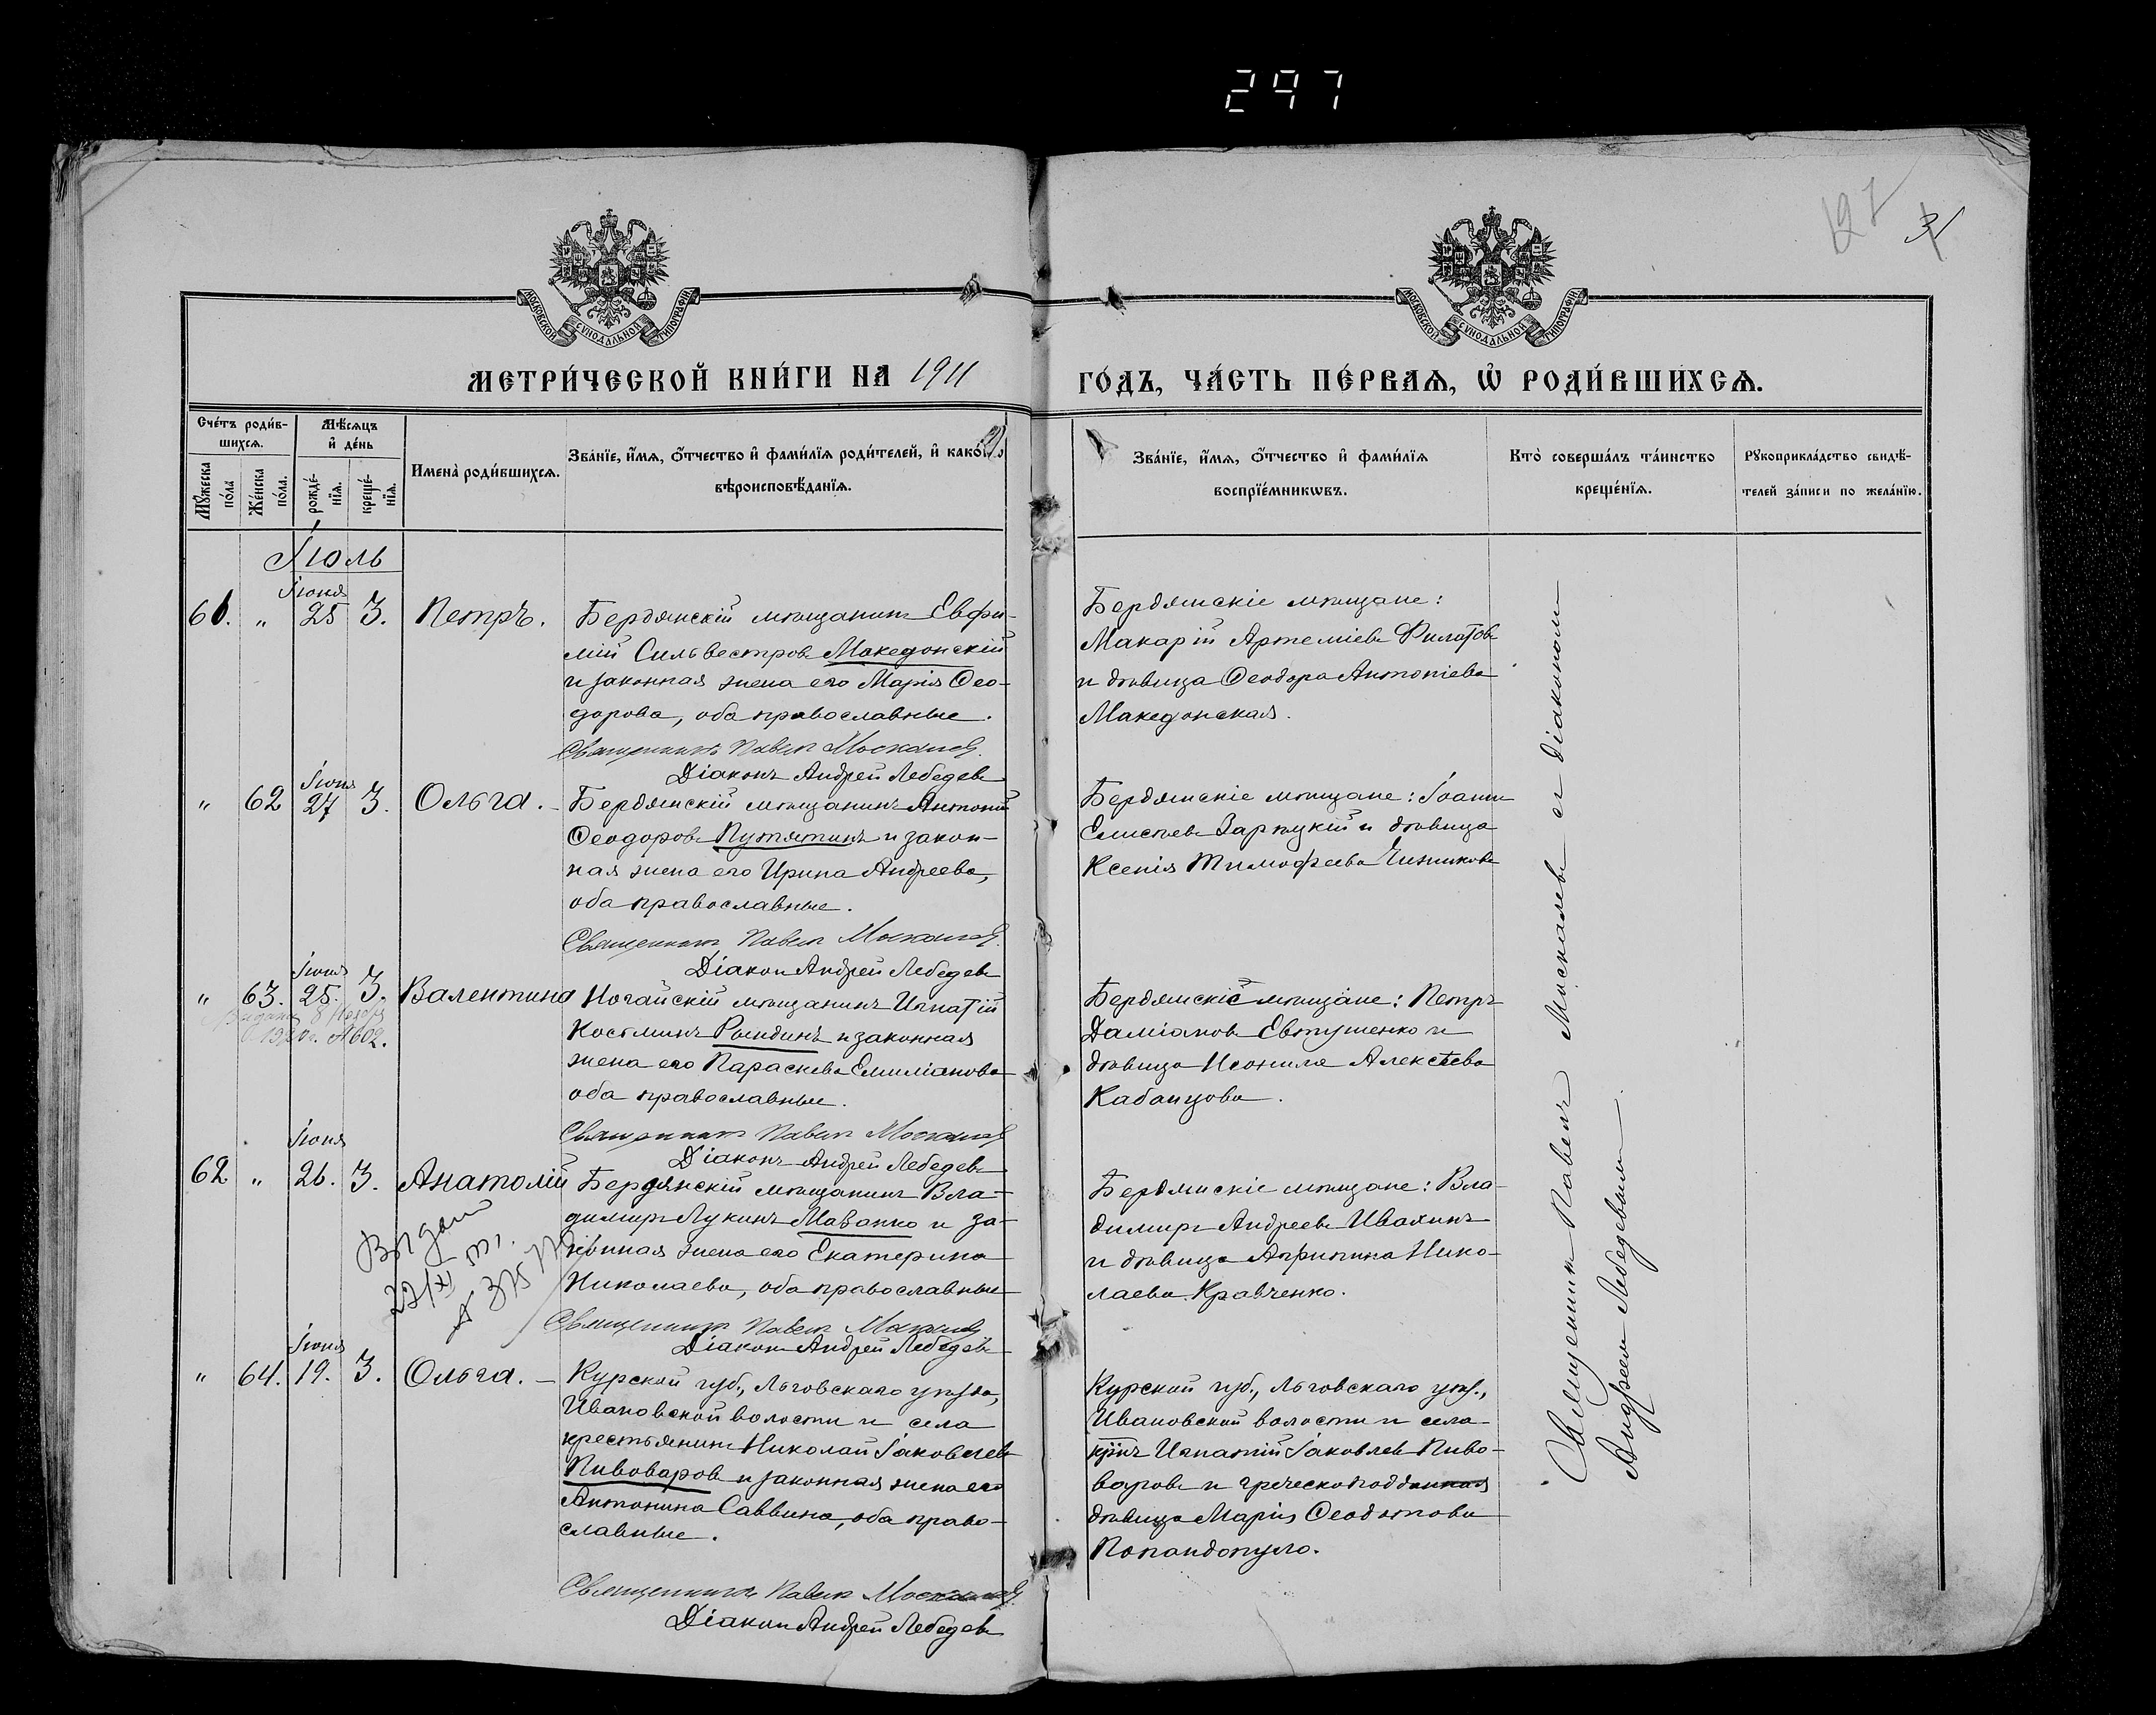 297
127
31
МОСКОВСКОЙ СѴНОДАЛЬНОЙ ТИПОГРАФІИ
МОСКОВСКОЙ СѴНОДАЛЬНОЙ ТИПОГРАФІИ
МЕТРИ́ЧЕСКОЙ КНИ́ГИ НА 1911
ГО́ДЪ, ЧА́СТЬ ПЕ́РВАѦ, Ѡ҆ РОДИ́ВШИХСѦ.
Сче́тъ роди́в-
шихсѧ.
Мꙋ́жеска
по́ла
Же́нска
по́ла.
Мѣ́сѧцъ
и҆ де́нь
рожде́-
нїѧ.
креще́-
нїѧ.
Имена̀ роди́вшихсѧ.
Зва́нїе, и҆́мѧ, ѻ҆́тчество и҆ фами́лїѧ роди́телей, и҆ како́гѡ
вѣроисповѣ́данїѧ.
Зва́нїе, и҆́мѧ, ѻ҆́тчество и҆ фами́лїѧ
воспрїе́мникѡвъ.
Кто̀ соверша́лъ та́инство
креще́нїѧ.
Рꙋкоприкла́дство свидѣ́-
телей за́писи по жела́нїю.
Іюль
Іюня
61. " 25 3. Петръ.
Бердянскій мѣщанинъ Евфи-
мій Сильвестровъ Македонскій
и законная жена его Марія Ѳео-
дорова, оба православные.
Священникъ Павелъ Москалевъ
Діаконъ Андрей Лебедевъ
Бердянскіе мѣщане:
Макарій Артеміевъ Филатовъ
и дѣвица Ѳеодора Антоніева
Македонская.
Іюня
" 62 27 3. Ольга. –
Бердянскій мѣщанинъ Антоній
Ѳеодоровъ Путятинъ и закон-
ная жена его Ирина Андреева,
оба православные.
Священникъ Павелъ Москалевъ
Діаконъ Андрей Лебедевъ
Бердянскіе мѣщане: Іоаннъ
Елисѣевъ Зарпуцкій и дѣвица
Ксенія Тимофеева
Іюня
" 63. 25. 3. Валентина
8 Ноября
1920 г. №602.
Ногайскій мѣщанинъ Игнатій
Костминъ Рындинъ и законная
жена его Параскева Емиліанова
оба православные.
Священникъ Павелъ Москалевъ
Діаконъ Андрей Лебедевъ
Бердянскіе мѣщане: Петръ
Даміановъ Евтушенко и
дѣвица Неонила Алексѣева
Кабанцова.
Іюня
62 " 26. 3. Анатолій
Выдан
22/XI
№ 375
Бердянскій мѣщанинъ Вла-
димиръ Лукинъ Маванко и за-
конная жена его Екатерина
Николаева, оба православные
Священникъ Павелъ Москалевъ
Діаконъ Андрей Лебедевъ
Бердянскіе мѣщане: Вла-
димиръ Андреевъ Ивахинъ
и дѣвица Агрипина Нико-
лаева Кравченко.
Іюня
" 64. 19. 3. Ольга. –
Курской губ., Льговскаго уѣзда,
Ивановской волости и села
крестьянинъ Николай Іаковлевъ
Пивоваровъ и законная жена его
Антонина Саввина, оба право-
славные.
Священникъ Павелъ Москалевъ
Діаконъ Андрей Лебедевъ
Курской губ., Льговскаго уѣз.,
Ивановской волости и села
кр̃нъ Игнатій Іаковлевъ Пиво-
варовъ и греческоподданная
дѣвица Марія Ѳеодотова
Попандопуло.
Священникъ Павелъ Москалевъ съ діакономъ
Андреемъ Лебедевымъ